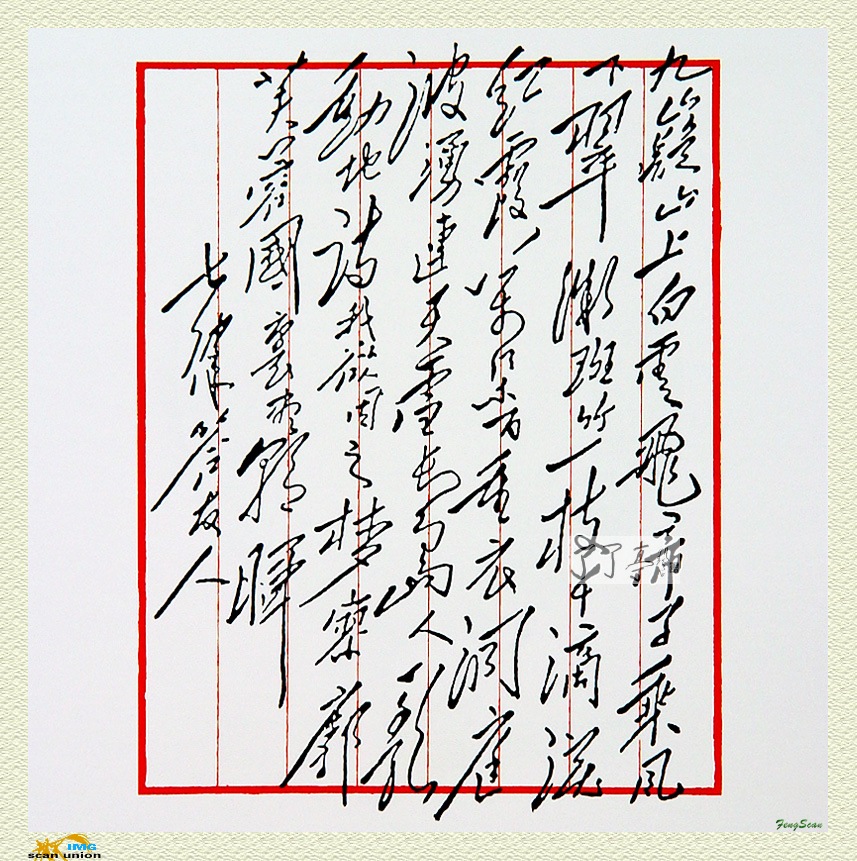 九嶷山上白雲飛帝子乘風
下翠微斑竹一枝千滴淚
紅霞萬朵百重衣洞庭
波湧連天雪長島人歌
動地詩我欲因之夢寥廓
芙蓉國裏盡朝暉
七律答友人
FengScan
IMG
scan union